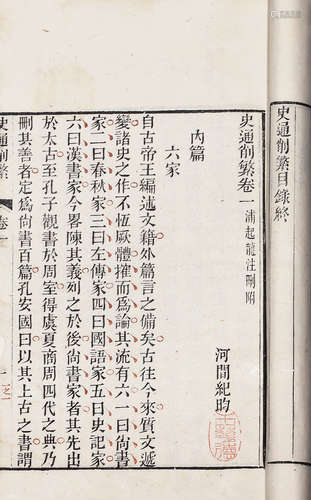 史通削繁目錄終
史通削繁卷一 浦起龍注刪附
河間紀昀
內篇
六家
自古帝王編述文籍外篇言之備矣古往今來質文遞
變諸史之作不恆厥體搉而為論其流有六一曰尚書
家二曰春秋家三曰左傳家四曰國語家五曰史記家
六曰漢書家今畧陳其義列之於後尚書家者其先出
於太古至孔子觀書於周室得虞夏商周四代之典乃
刪其善者定為尚書百篇孔安國曰以其上古之書謂
史通削繁 卷一